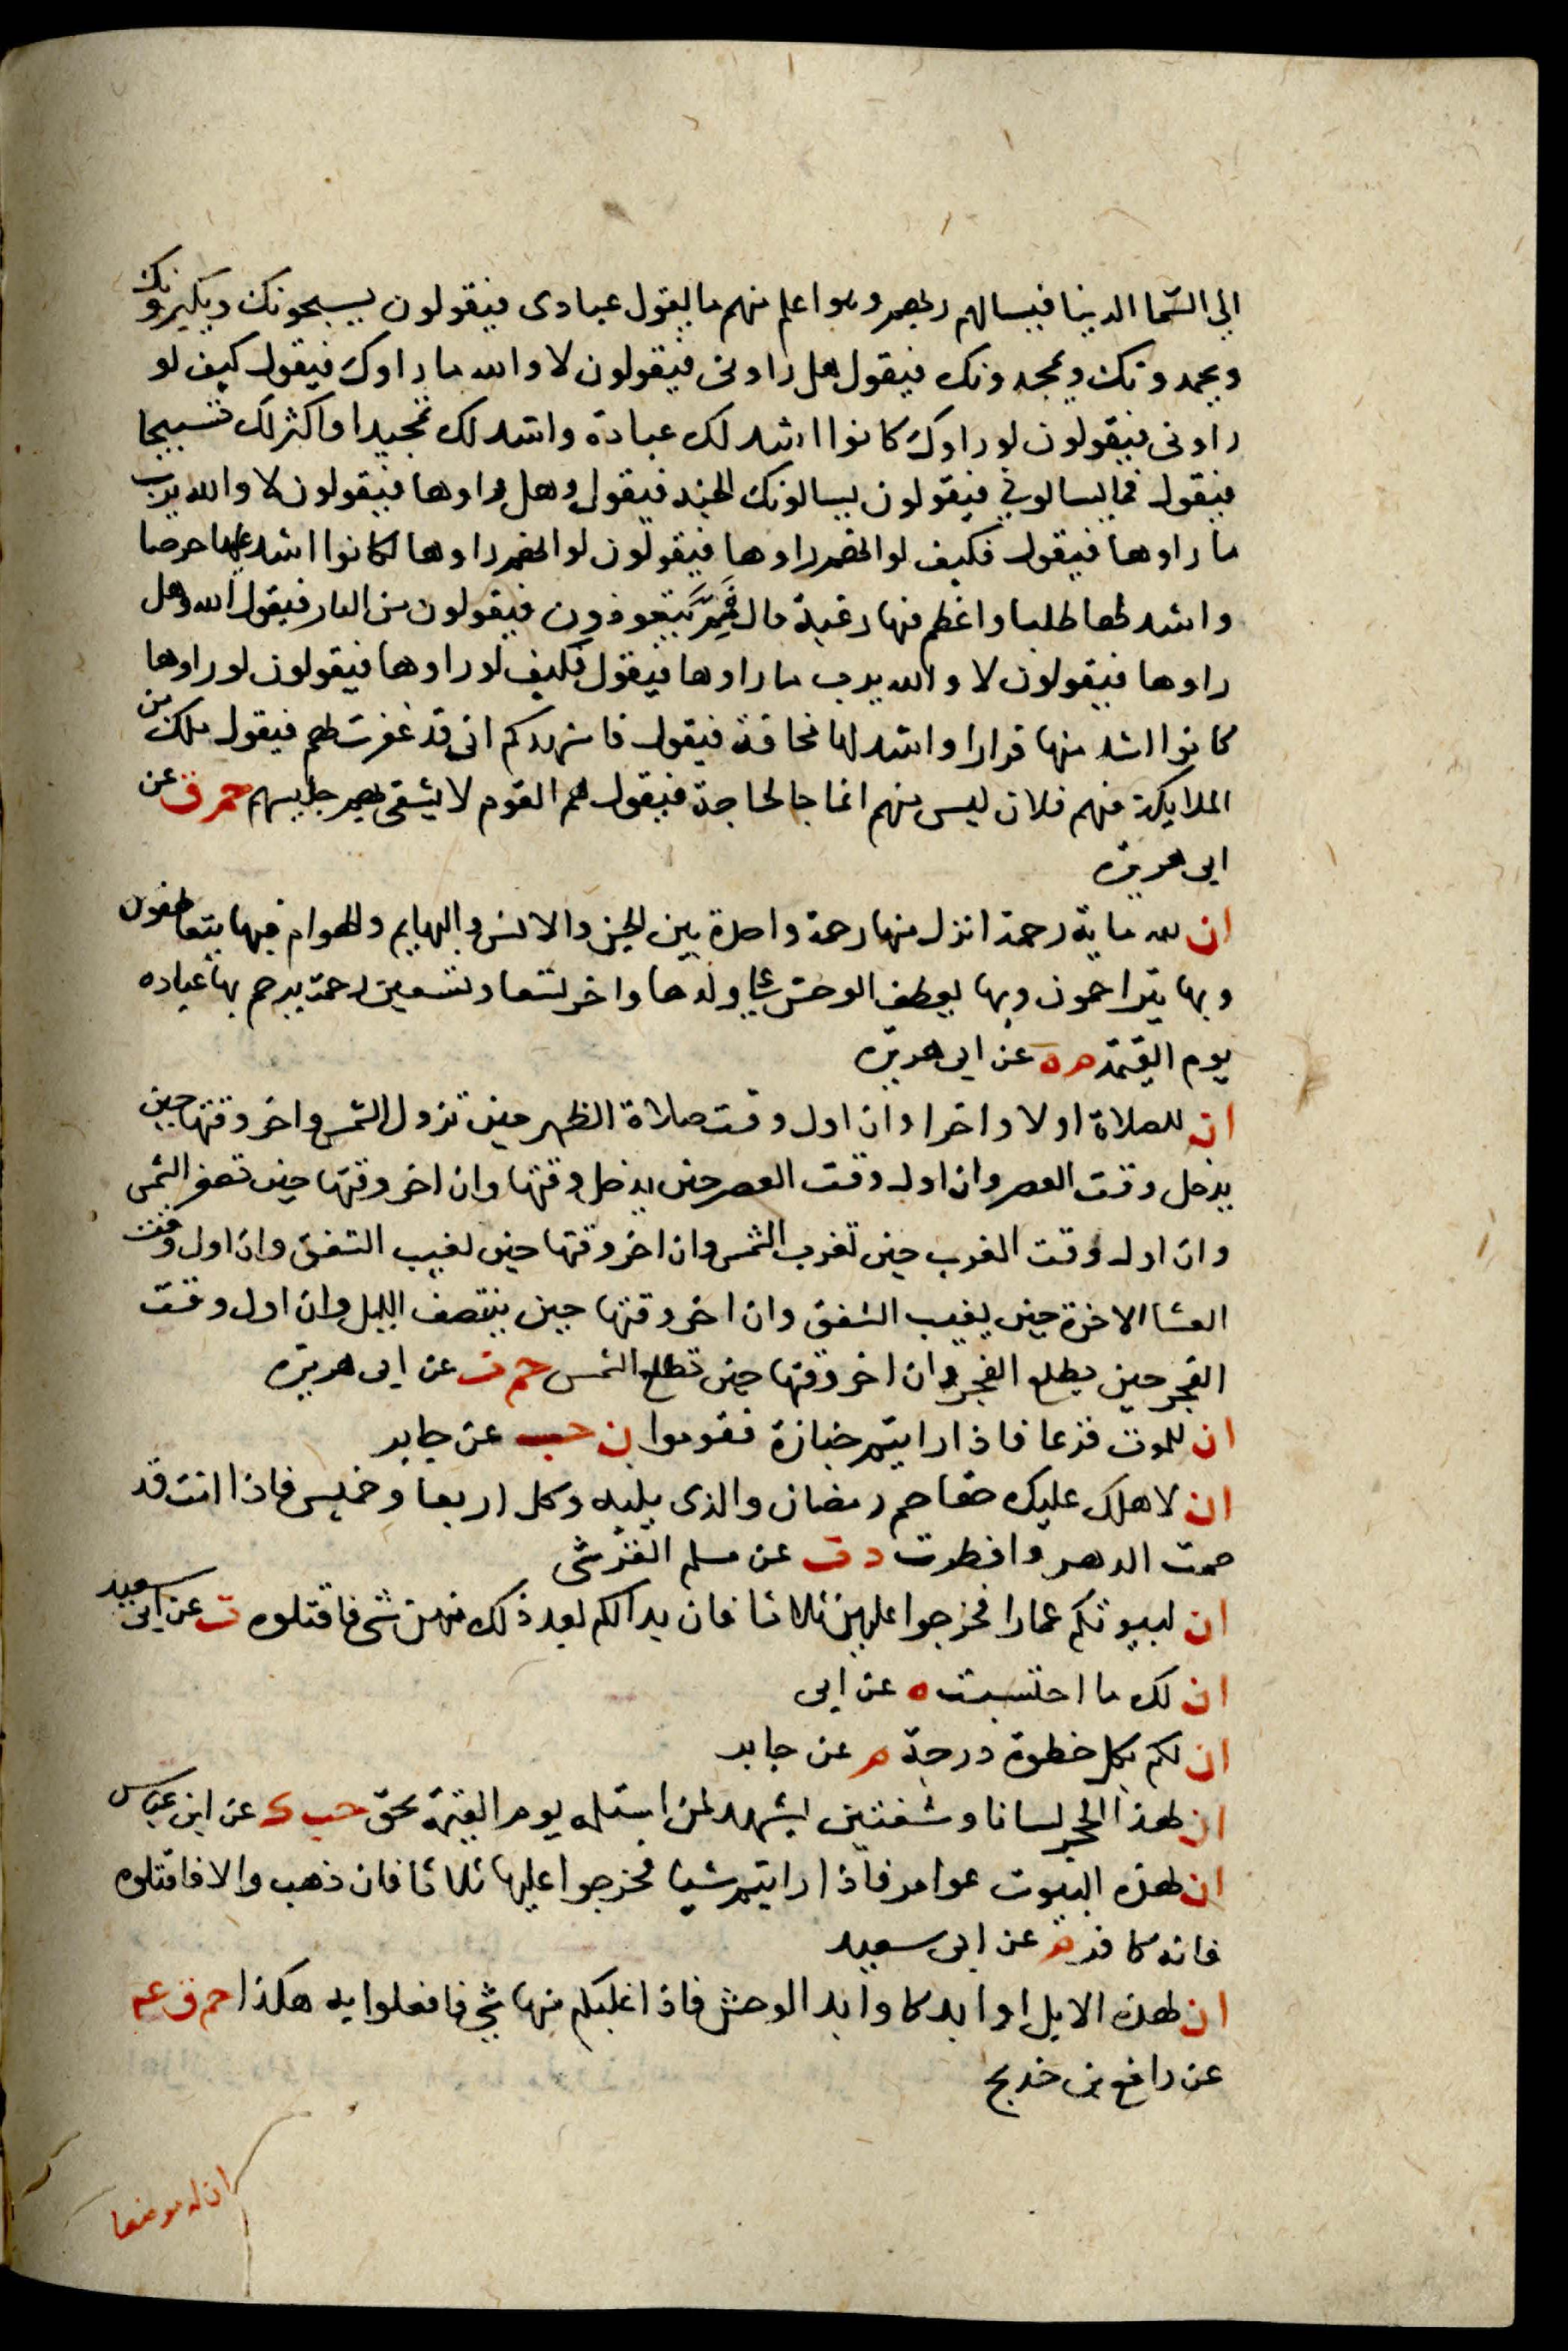 الى السما الدنيا فيسالهم ربهم وهو اعلم منهم ما يقول عبادى فيقولون يسبحونك ويكبرونك
ويحمدونك ويمجدونك فيقول هل راونى فيقولون لا والله ما راوك فيقول كيف لو
راونى فيقولون لو راوك كانوا اشد لك عبادة واشد لك تمجيدا واكثر لك تسبيحا
فيقول فما يسالونى فيقولون يسالونك الجنة فيقول وهل راوها فيقولون لا والله يرب
ما راوها فيقول فكيف لو انهم راوها فيقولون لو انهم راوها كانوا اشد عليها حرصا
واشد لها طلبا واعظم فيها رغبة قال فمم يتعوذون فيقولون من النار فيقول الله وهل
راوها فيقولون لا والله يرب ما راوها فيقول فكيف لو راوها فيقولون لو راوها
كانوا اشد منها فرارا واشد لها مخافة فيقول فاشهدكم انى قد غفرت لهم فيقول ملك من
الملايكة فيهم فلان ليس منهم انما جا لحاجة فيقول هم القوم لا يشقى بهم جليسهم حم ق عن
ابى هريرة
ان لله ماية رحمة انزل منها رحمة واحدة بين الجن والانس والبهايم والهوام فبها يتعاطفون
وبها يتراحمون وبها يعطف الوحش على ولدها واخر تسعا وتسعين رحمة يرحم بها عباده
يوم القيمة م ه عن ابى هريرة
ان للصلاة اولا واخرا وان اول وقت صلاة الظهر حين تزول الشمس واخر وقتها حين
يدخل وقت العصر وان اول وقت العصر حين يدخل وقتها وان اخر وقتها حين تصفر الشمس
وان اول وقت المغرب حين تغرب الشمس وان اخر وقتها حين يغيب الشفق وان اول وقت
العشا الاخرة حين يغيب الشفق وان اخر وقتها حين ينتصف الليل وان اول وقت
الفجر حين يطلع الفجر وان اخر وقتها حين تطلع الشمس حم ت عن ابى هريرة
ان للموت فزعا فاذا رايتم جنازة فقوموا ن حب عن جابر
ان لاهلك عليك حقا صم رمضان والذى يليه وكل اربعا وخميس فاذا انت قد
صمت الدهر وافطرت د ت عن مسلم القرشى
ان لبيوتكم عمارا فحرجوا عليهن ثلاثا فان بدا لكم بعد ذلك منهن شى فاقتلوه ت عن ابى سعيد
ان لك ما احتسبت ه عن ابى
ان لكم بكل خطوة درجة م عن جابر
ان لهذا الحجر لسانا وشفتين يشهد لمن استلمه يوم القيمة بحق حب ك عن ابن عباس
ان لهذه البيوت عوامر فاذا رايتم شيا فحرجوا عليها ثلاثا فان ذهب والا فاقتلوه
فانه كافر م عن ابى سعيد
ان لهذه الابل اوابد كاوابد الوحش فاذا غلبكم منها شى فافعلوا به هكذا حم ق عه
عن رافع بن خديج
ان له موضعا